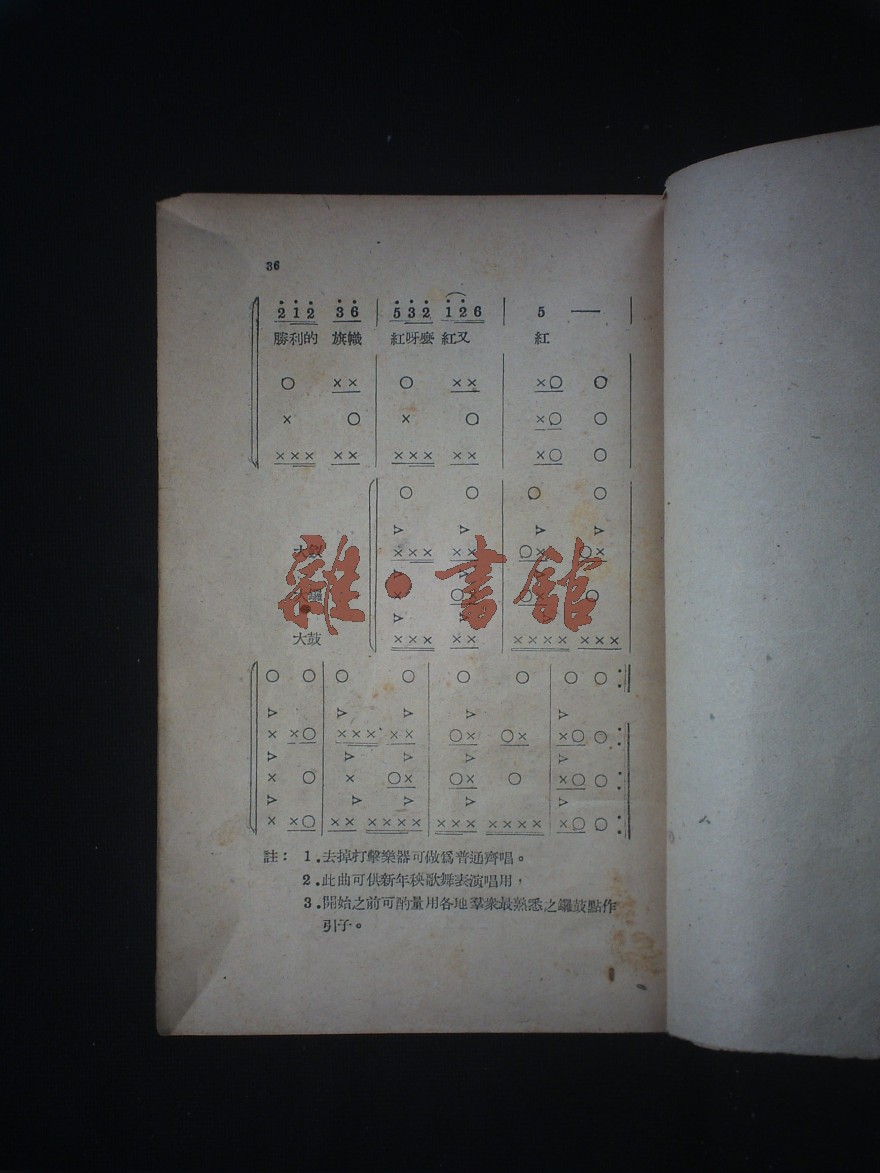 36
2 1 2 3 6 | 5 3 2 1 2 6 | 5 — |
勝利的 旗幟 紅呀麼 紅又 紅
○ ×× | ○ ×× | ×○ ○
× ○ | × ○ | ×○ ○
××× ×× | ××× ×× | ×○ ○
大鼓
雜·書館
大鼓
註： 1．去掉打擊樂器可做爲普通齊唱。
2．此曲可供新年秧歌舞表演唱用，
3．開始之前可酌量用各地羣衆最熟悉之鑼鼓點作
引子。